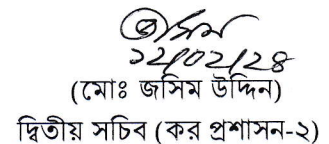 ১২/০২/২৪
(মোঃ জসিম উদ্দিন)
দ্বিতীয় সচিব (কর প্রশাসন-২)